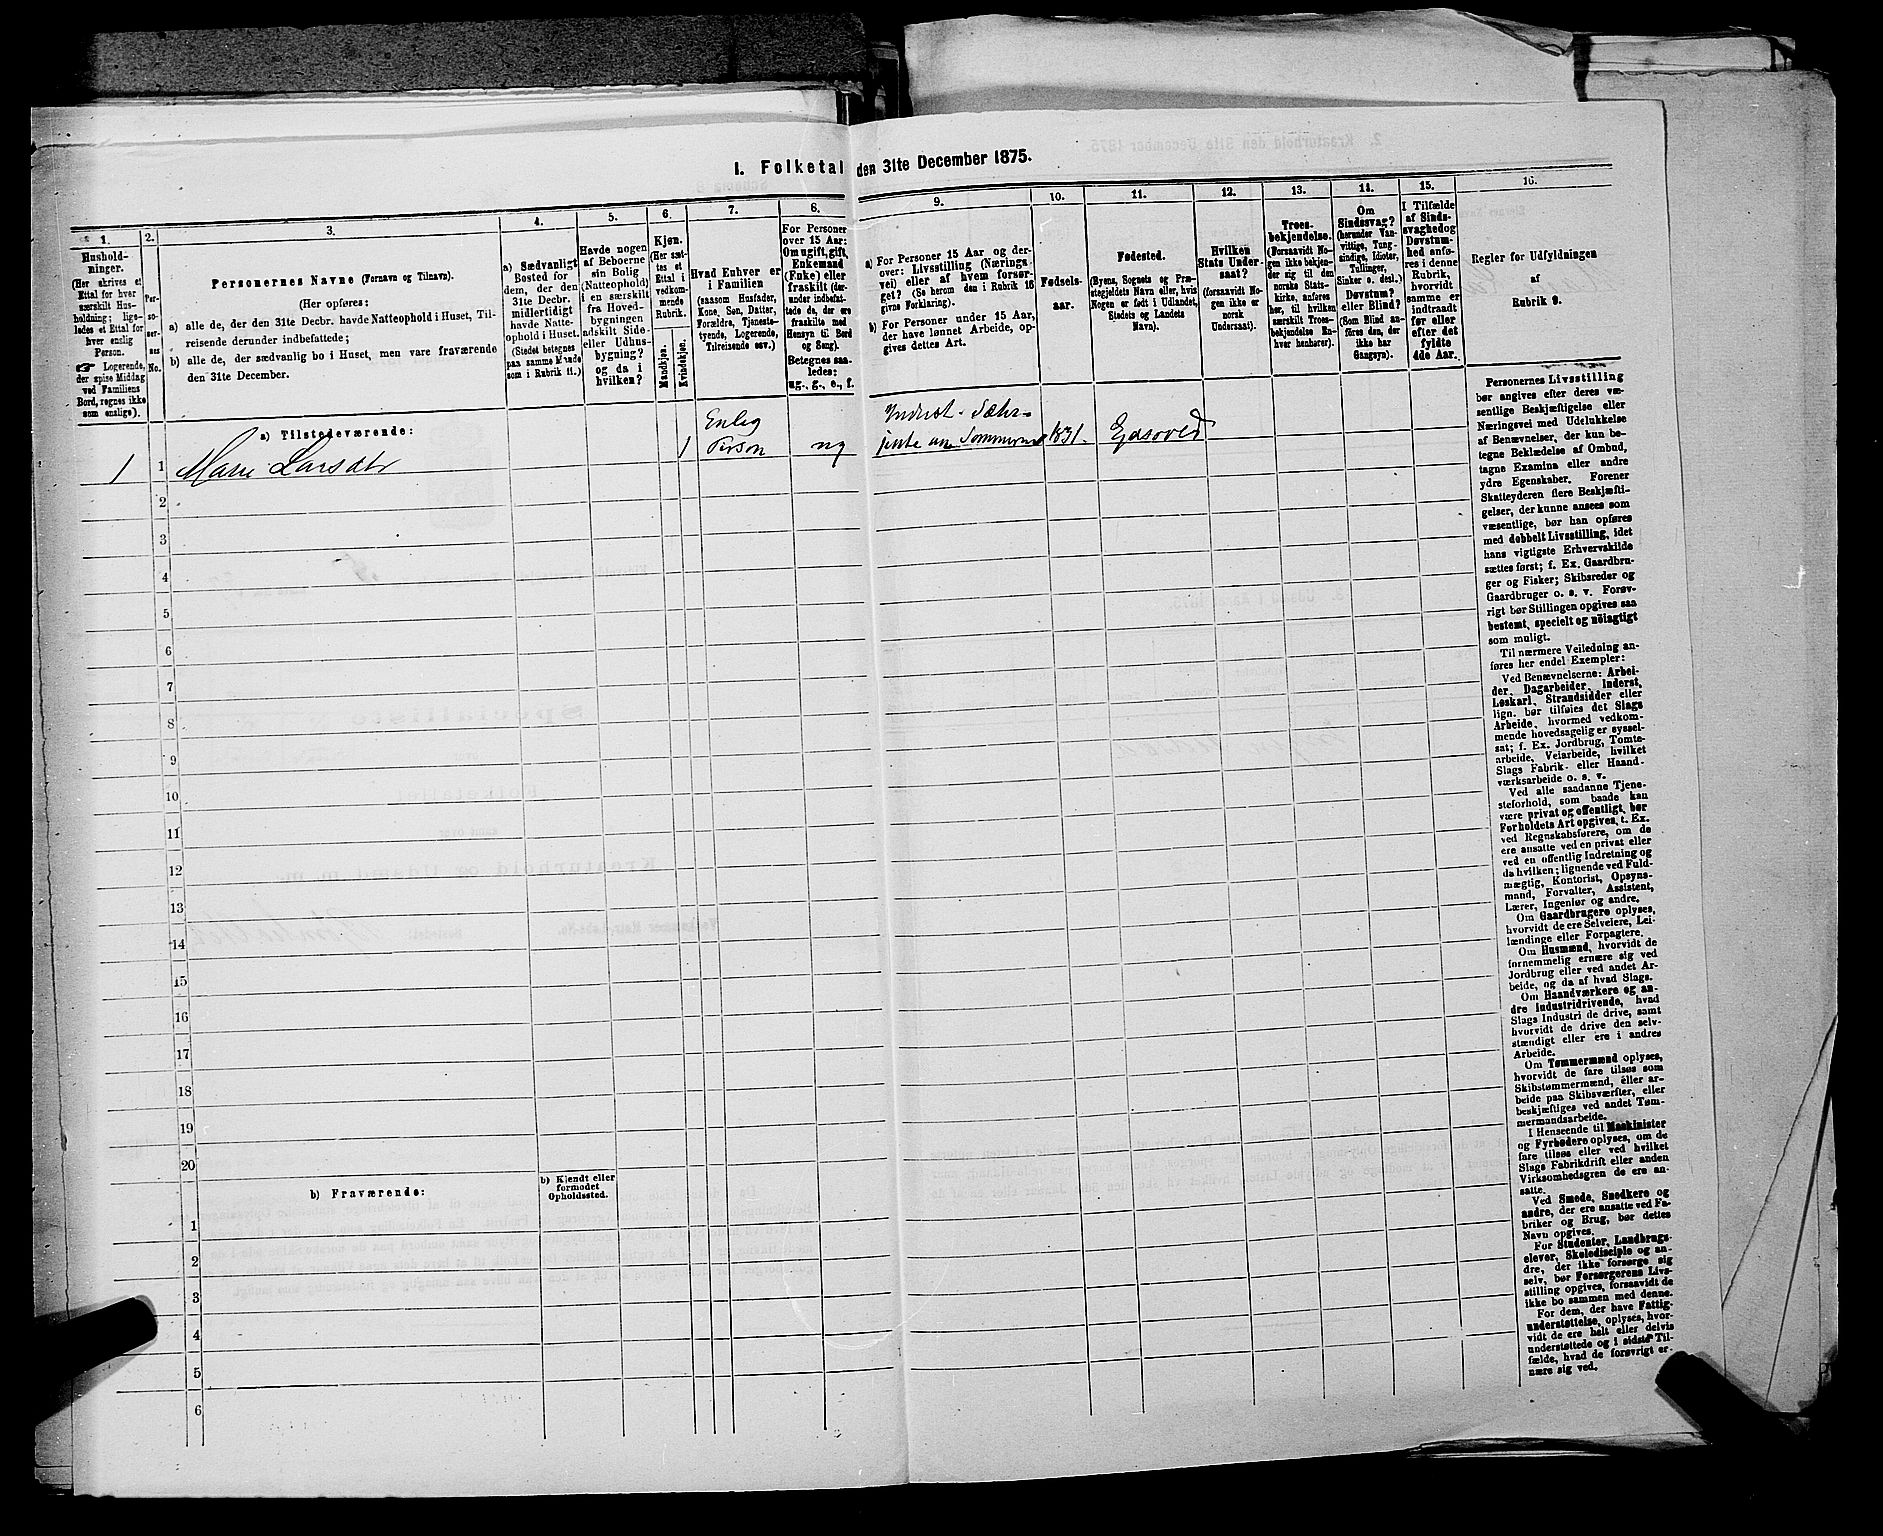 1. Folketal den 31te December 1875.
1.
Hushold-
ninger.
(Her skrives et
Ettal for hver
særskilt Hus-
holdning; lige-
ledes et Ettal for
hver enslig
Person.
☞ Logerende,
der spise Middag
ved Familiens
Bord, regnes ikke
som enslige).
2.
Per-
so-
ner-
nes
No.
3.
Personernes Navne (Fornavn og Tilnavn).
(Her opføres:
a) alle de, der den 31te Decbr. havde Natteophold i Huset, Til-
reisende derunder indbefattede;
b) alle de, der sædvanlig bo i Huset, men vare fraværende
den 31te December.
4.
a) Sædvanligt
Bosted for
dem, der den
31te Decbr.
midlertidigt
havde Natte-
ophold i Huset.
(Stedet betegnes
paa samme Maade
som i Rubrik 11.)
5.
Havde nogen
af Beboerne
sin Bolig
(Natteophold)
i en særskilt
fra Hoved-
bygningen
adskilt Side-
eller Udhus-
bygning?
og da i
hvilken?
6.
Kjøn.
(Her sæt-
tes et
Ettal i
vedkom-
mende
Rubrik.
Mandkjøn.
Kvindekjøn.
7.
Hvad Enhver er
i Familien
(saasom Husfader,
Kone, Søn, Datter,
Forældre, Tjeneste-
tyende, Logerende,
Tilreisende osv.)
8.
For Personer
over 15 Aar:
Om ugift, gift,
Enkemand
(Enke) eller
fraskilt (der-
under indbefat-
tede de, der ere
fraskilte med
Hensyn til Bord
og Seng).
Betegnes saa-
ledes:
ug., g., e., f.
9.
a) For Personer 15 Aar og der-
over: Livsstilling (Nærings-
vei) eller af hvem forsør-
get? (Se herom den i Rubrik 16
givne Forklaring).
b) For Personer under 15 Aar,
der have lønnet Arbeide, op-
gives dettes Art.
10.
Fødsels-
aar.
11.
Fødested.
(Byens, Sognets og Præ-
stegjeldets Navn eller, hvis
Nogen er født i Udlandet,
Stedets og Landets
Navn).
12.
Hvilken
Stats Under-
saat?
(forsaavidt No-
gen ikke er
norsk
Undersaat).
13.
Troes-
bekjendelse.
(Forsaavidt No-
gen ikke bekjen-
der sig til den
norske Stats-
kirke, anføres
her, til hvilken
særskilt Troes-
bekjendelse En-
hver henhører).
14.
Om
Sindssvag?
(herunder Van-
vittige, Tung-
sindige, Idioter,
Tullinger,
Sinker o. desl.)
Døvstum?
eller Blind?
(Som Blind an-
føres den, der
ikke har
Gangsyn).
15.
I Tilfælde
af Sinds-
svaghed og
Døvstum-
hed anfø-
res i denne
Rubrik,
hvorvidt
samme er
indtraadt
før eller
efter det
fyldte
4de Aar.
16.
Regler for Udfyldningen
af
Rubrik 9.
a) Tilstedeværende:
1 1 Marie Larsdtr 1 Enlig
Person ug 1831.
2
3
4
5
6
7
8
9
10
11
12
13
14
15
16
17
18
19
20
b) Fraværende:
b) Kjendt eller
formodet
Opholdssted.
1
2
3
4
5
6
Personernes Livsstilling
bør angives efter deres væ-
sentlige Beskjæftigelse eller
Næringsvei med Udelukkelse
af Benævnelser, der kun be-
tegne Beklædelse af Ombud,
tagne Examina eller andre
ydre Egenskaber. Forener
Skatteyderen flere Beskjæfti-
gelser, der kunne ansees som
væsentlige, bør han opføres
med dobbelt Livsstilling, idet
hans vigtigste Erhvervskilde
sættes først; f. Ex. Gaardbru-
ger og Fisker; Skibsreder og
Gaardbruger o. s. v. Forøv-
rigt bør Stillingen opgives saa
bestemt, specielt og nöiagtigt
som muligt.
Til nærmere Veiledning an-
føres her endel Exempler:
Ved Benævnelserne: Arbei-
der, Dagarbeider, Inderst,
Løskarl, Strandsidder eller
lign. bør tilføies det Slags
Arbeide, hvormed vedkom-
mende hovedsagelig er syssel-
sat; f. Ex. Jordbrug, Tomte-
arbeide, Veiarbeide, hvilket
Slags Fabrik- eller Haand-
værksarbeide o. s. v.
Ved alle saadanne Tjene-
steforhold, som baade kan
være privat og offentligt, bør
Forholdets Art opgives, t. Ex.
ved Regnskabsførere, om de
ere ansatte ved en privat eller
ved en offentlig Indretning og
da hvilken; lignende ved Fuld-
mægtig, Kontorist, Opsyns-
mand, Forvalter, Assistent,
Lærer, Ingeniør og andre.
Om Gaardbrugere oplyses,
hvorvidt de ere Selveiere, Lei-
lændinge eller Forpagtere.
Om Husmænd, hvorvidt de
fornemmelig ernære sig ved
Jordbrug eller ved andet Ar-
beide, og da af hvad Slags.
Om Haandværkere og an-
dre Industridrivende, hvad
Slags Industri de drive, samt
hvorvidt de drive den selv-
stændigt eller ere i andres
Arbeide.
Om Tømmermænd oplyses,
hvorvidt de fare tilsøs som
Skibstømmermænd, eller ar-
beide paa Skibsværfter, eller
beskjæftiges ved andet Tøm-
mermandsarbeide.
I Henseende til Maskinister
og Fyrbødere oplyses, om de
fare tilsøs eller ved hvilket
Slags Fabrikdrift eller anden
Virksomhedsgren de ere an-
satte.
Ved Smede, Snedkere og
andre, der ere ansatte ved Fa-
briker og Brug, bør dettes
Navn opgives.
For Studenter, Landbrugs-
elever, Skoledisciple og an-
dre, der ikke forsørge sig
selv, bør Forsørgerens Livs-
stilling opgives, forsaavidt de
ikke bo sammen med denne.
For dem, der have Fattig-
understøttelse, oplyses, hvor-
vidt de ere helt eller delvis
understøttede og i sidste Til-
fælde, hvad de forøvrigt er-
nære sig ved.